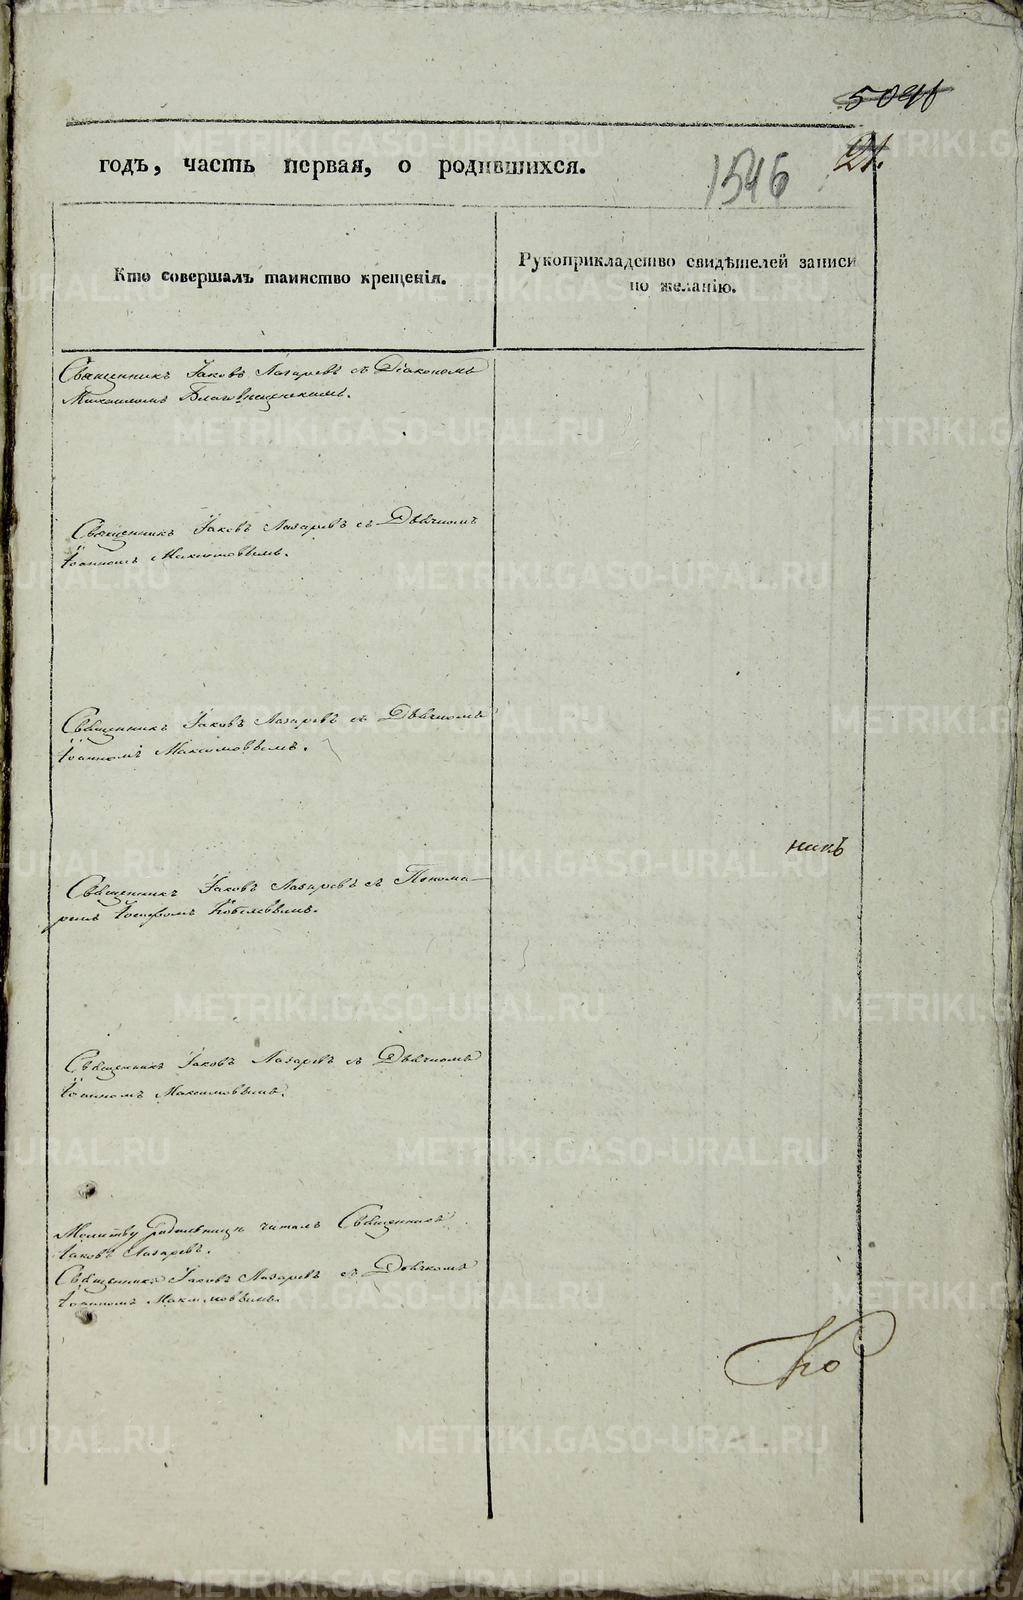 годъ, часть первая, о родившихся.
1546
21.
Кто совершалъ таинство крещенія.
Рукоприкладство свидѣтелей записи
по желанію.
Священникъ Іаковъ Лазаревъ съ Діакономъ
Михаиломъ Благовѣщенскимъ.
Священникъ Іаковъ Лазаревъ съ Дьячкомъ
Іоанномъ Максимовымъ.
Священникъ Іаковъ Лазаревъ съ Дьячкомъ
Іоанномъ Максимовымъ.
никъ
Священникъ Іаковъ Лазаревъ съ Понома-
ремъ Іосифомъ
Священникъ Іаковъ Лазаревъ съ Дьячкомъ
Іоанномъ Максимовымъ.
Молитву родильницѣ читалъ Священникъ
Іаковъ Лазаревъ.
Священникъ Іаковъ Лазаревъ съ Дьячкомъ
Іоанномъ Максимовымъ.
Ко
METRIKI.GASO-URAL.RU